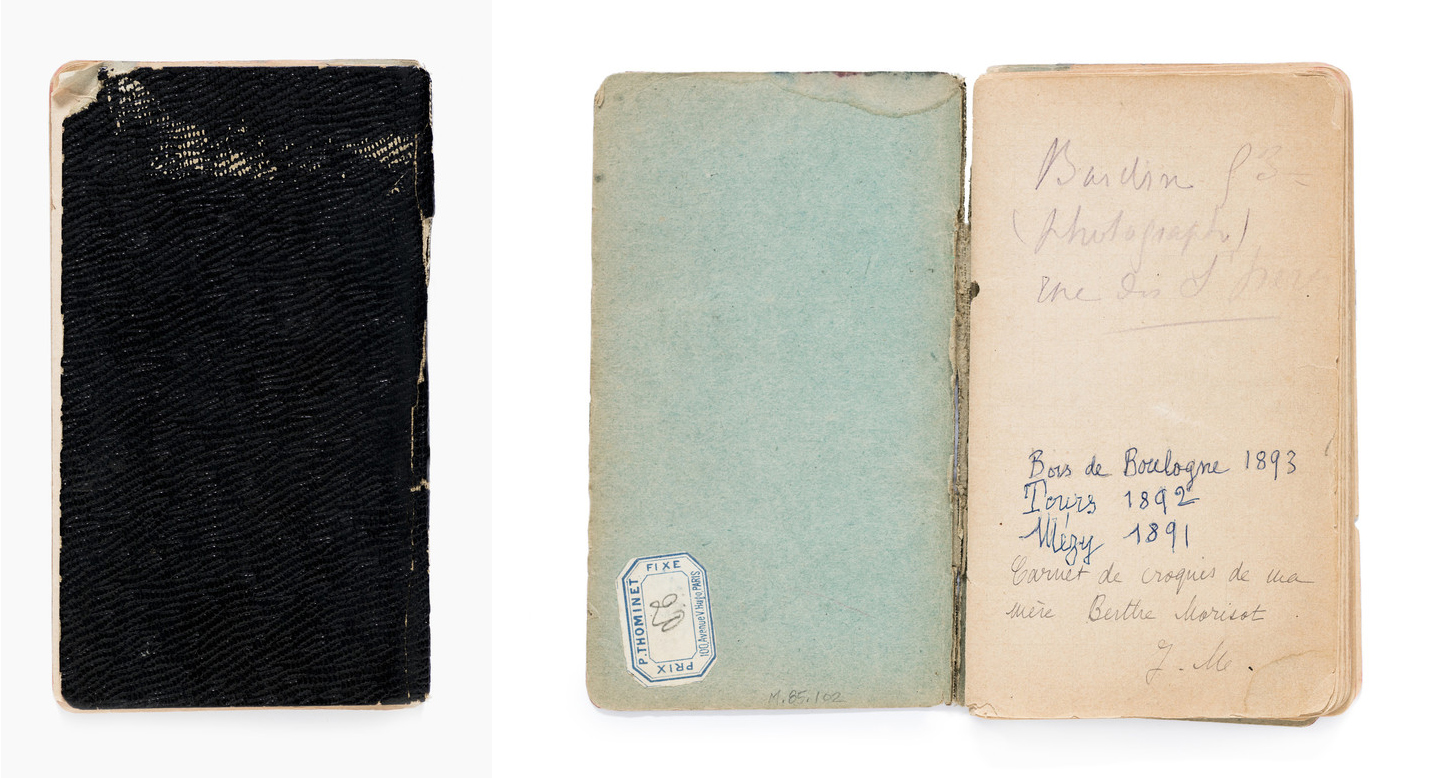 P. THOMINET
FIXE
100, Avenue V. Hugo, PARIS
PRIX
M.85.102
Bardin
(Photograph)
rue
Bois de Boulogne 1893
Tours 1892
Mézy 1891
Carnet de croquis de ma
mère Berthe Morisot
J. M.